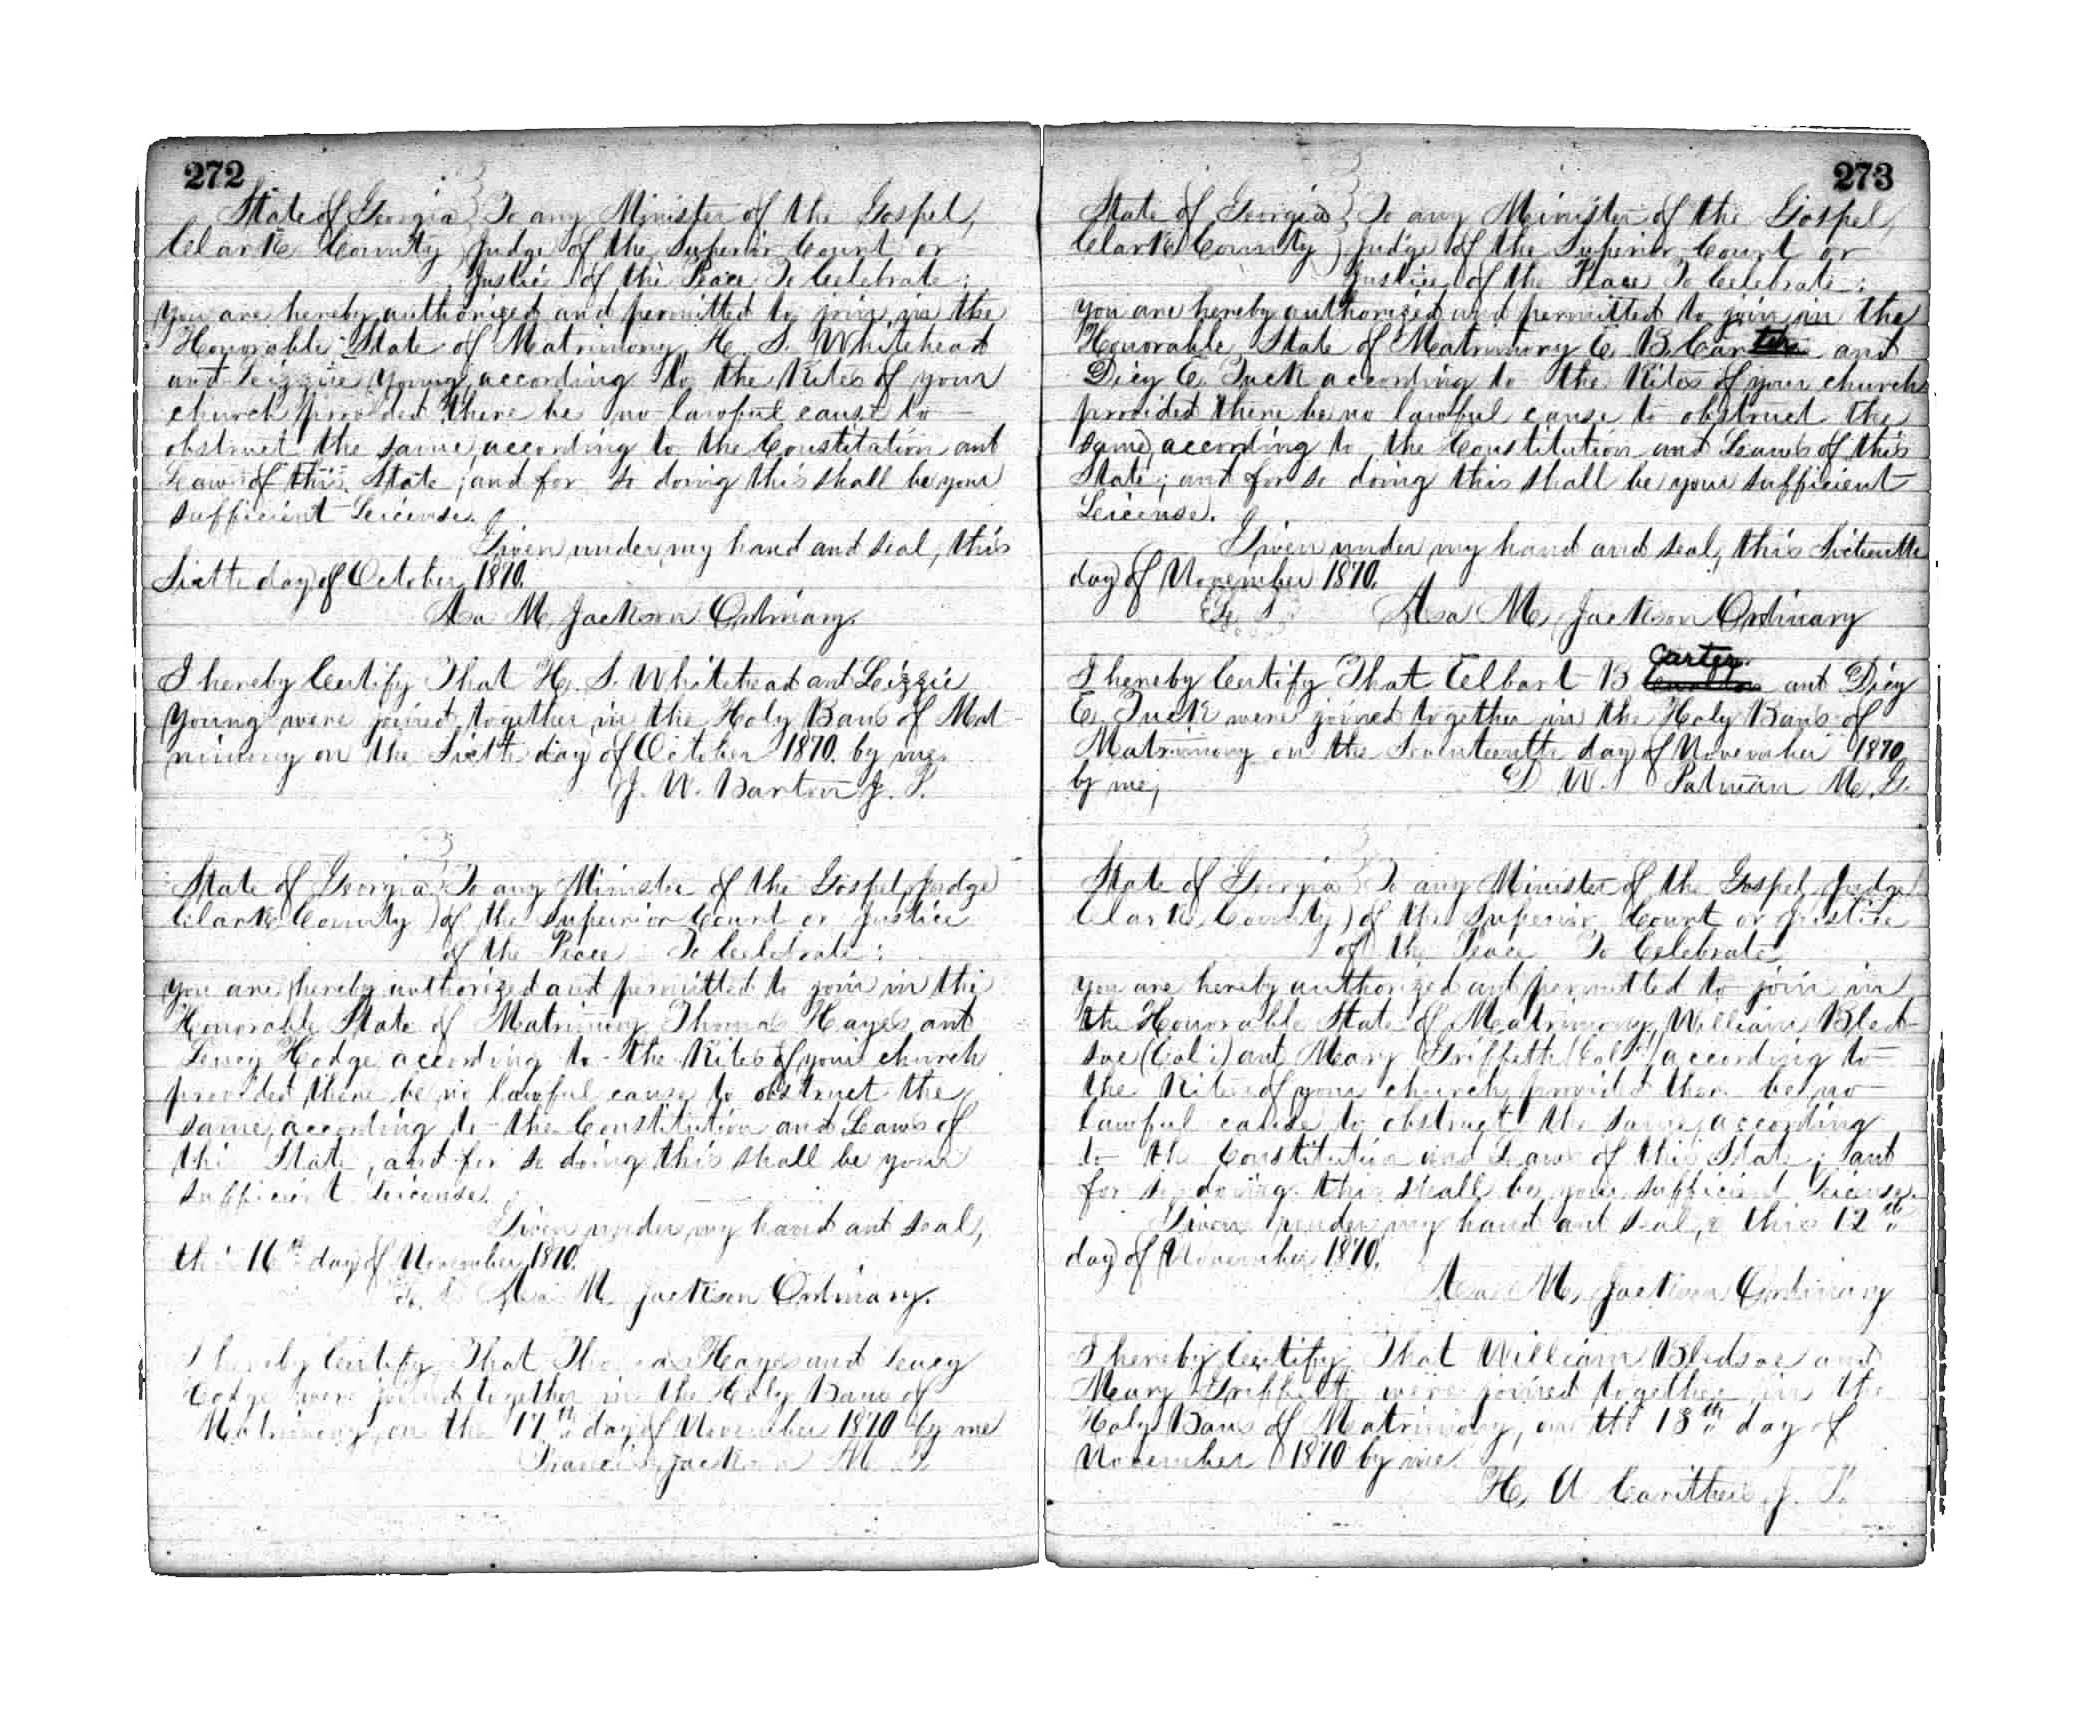 272
State of Georgia } To any Minister of the Gospel,
Clarke County } Judge of the Superior Court or
Justice of the Peace To Celebrate:
You are hereby authorized and permitted to join in the
Honorable State of Matrimony H. S. Whitehead
and Lizzie Young, according to the Rites of your
church provided there be no lawful cause to
obstruct the same, according to the Constitution and
Laws of this State; and for so doing this shall be your
sufficient License.
Given under my hand and seal, this
Sixth day of October, 1870.
Asa M. Jackson Ordinary.
I hereby Certify That H. S. Whitehead and Lizzie
Young were joined together in the Holy Bans of Mat-
rimony on the Sixth day of October 1870. by me.
J. W. Barton J. P.
State of Georgia } To any Minister of the Gospel, Judge
Clarke County } of the Superior Court or Justice
of the Peace To Celebrate:
You are hereby authorized and permitted to join in the
Honorable State of Matrimony Thomas Hayes and
Hodge according to the Rites of your church
provided there be no lawful cause to obstruct the
same, according to the Constitution and Laws of
this State, and for so doing this shall be your
sufficient License.
Given under my hand and seal,
this 16th day of November 1870.
L. S. Asa M. Jackson Ordinary.
I hereby Certify That Thomas Hayes and
Hodge were joined together in the Holy Bans of
Matrimony, on the 17th day of November 1870 by me
Francis Jackson M. G.
273
State of Georgia } To any Minister of the Gospel,
Clarke County } Judge of the Superior Court or
Justice of the Peace To Celebrate:
You are hereby authorized and permitted to join in the
Honorable State of Matrimony E. B. Carter and
Dicy E. Tuck according to the Rites of your church
provided there be no lawful cause to obstruct the
same, according to the Constitution and Laws of this
State; and for so doing this shall be your sufficient
License.
Given under my hand and seal, this Sixteenth
day of November 1870.
L. S. Asa M. Jackson Ordinary
Carter
I hereby Certify That Elbart B and Dicy
E. Tuck were joined together in the Holy Bans of
Matrimony on the Seventeenth day of November 1870
by me, D. W. Patman M. G.
State of Georgia } To any Minister of the Gospel, Judge
Clarke County } of the Superior Court or Justice
of the Peace To Celebrate
You are hereby authorized and permitted to join in
the Honorable State of Matrimony, William Bled-
soe (Col.) and Mary Griffeth (Col.) according to
the Rites of your church, provided there be no
lawful cause to obstruct the same, according
to the Constitution and Laws of this State; and
for so doing this shall be your sufficient License.
Given under my hand and seal, this 12th
day of November 1870.
Asa M. Jackson Ordinary
I hereby Certify That William Bledsoe and
Mary Griffeth were joined together in the
Holy Bans of Matrimony, on the 13th day of
November 1870 by me
H. A. Carithers, J. P.